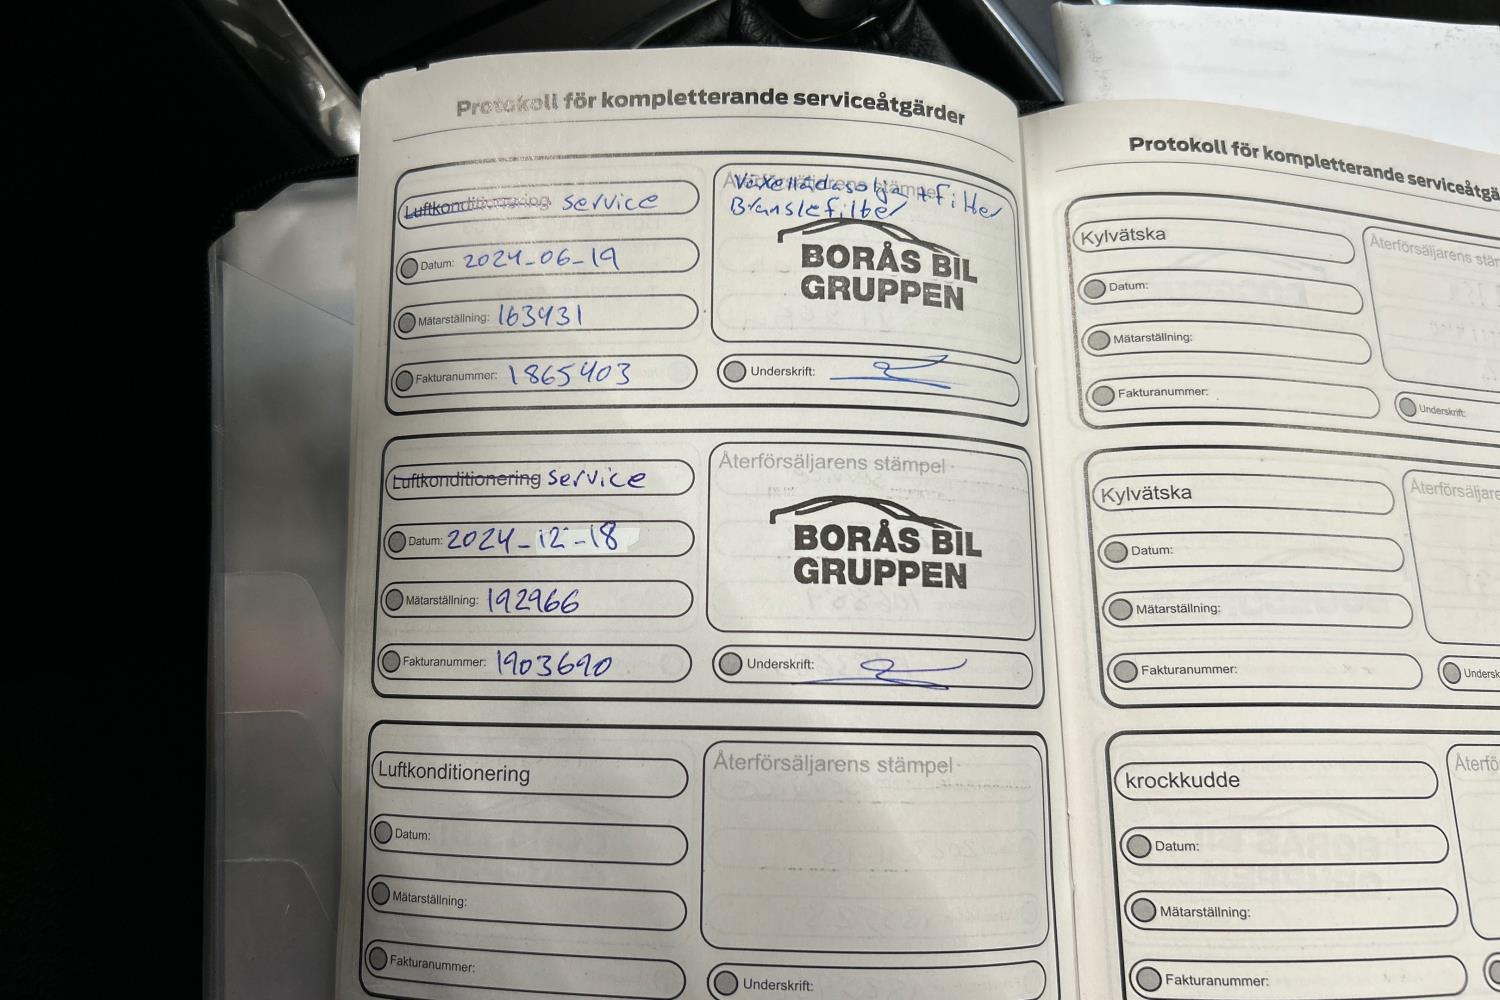 Protokoll för kompletterande serviceåtgärder
Luftkonditionering service
Växellådsolja + Filter
Bränslefilter
Datum: 2024-06-19
BORÅS BIL
GRUPPEN
Mätarställning: 163431
Fakturanummer: 1865403
Underskrift:
Luftkonditionering service
Återförsäljarens stämpel
Datum: 2024-12-18
BORÅS BIL
GRUPPEN
Mätarställning: 192966
Fakturanummer: 1903690
Underskrift:
Luftkonditionering
Återförsäljarens stämpel
Datum:
Mätarställning:
Fakturanummer:
Underskrift:
Protokoll för kompletterande serviceåtgä
Kylvätska
Återförsäljarens stäm
Datum:
Mätarställning:
Fakturanummer:
Underskrift:
Kylvätska
Återförsäljare
Datum:
Mätarställning:
Fakturanummer:
Undersk
krockkudde
Återfö
Datum:
Mätarställning:
Fakturanummer: